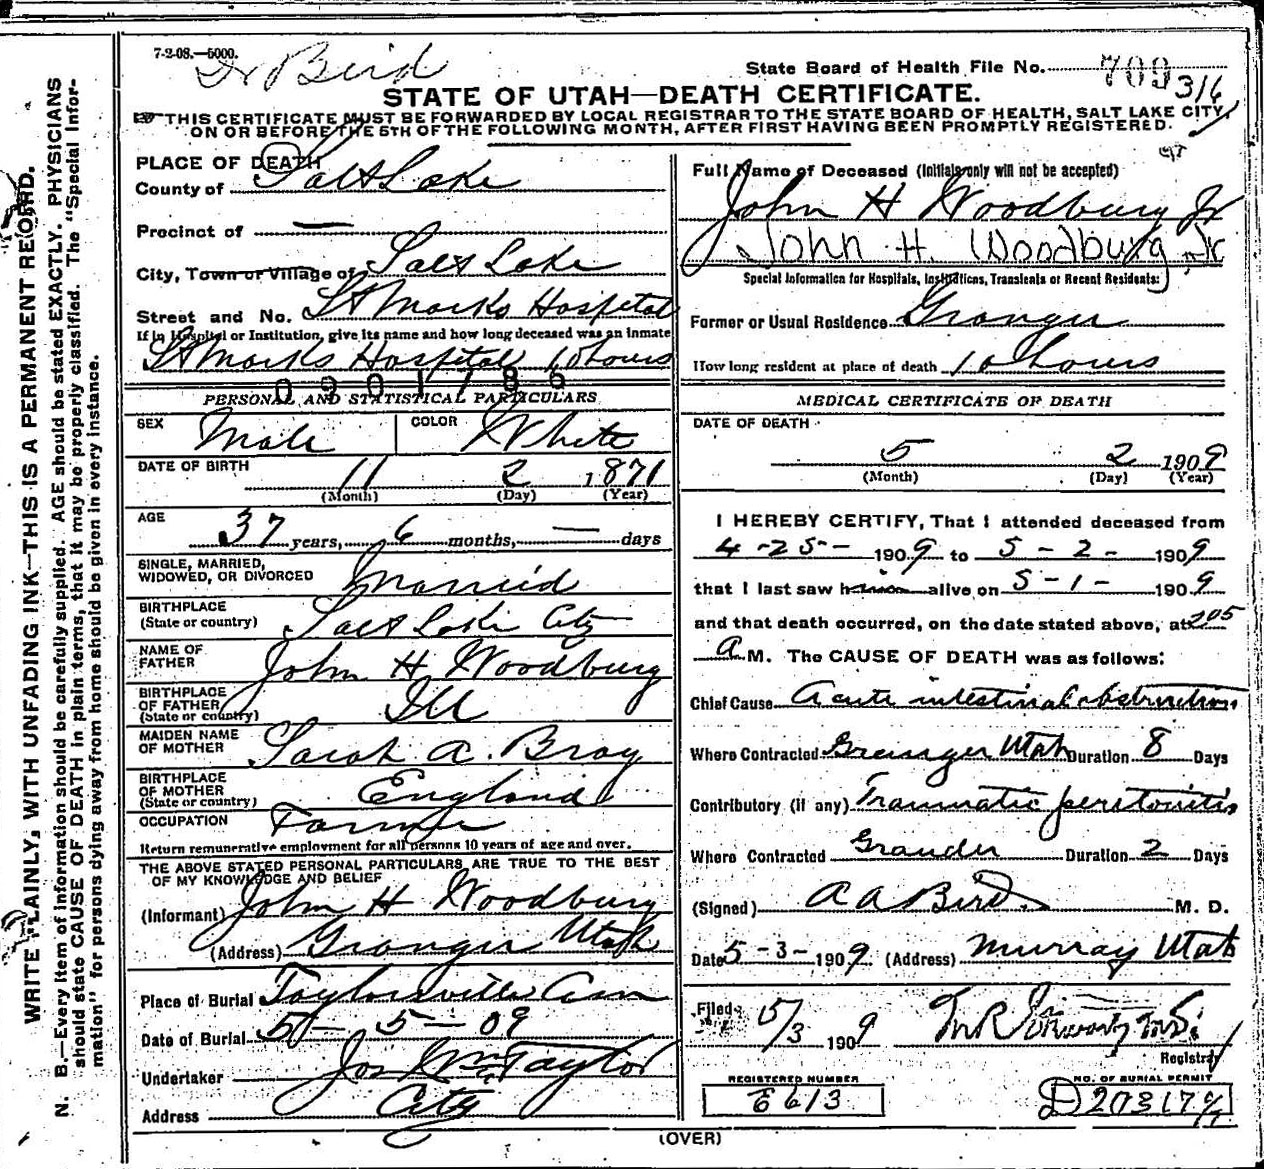 7-2-08.—5000.
Dr Bird
State Board of Health File No. 709 316
STATE OF UTAH—DEATH CERTIFICATE.
THIS CERTIFICATE MUST BE FORWARDED BY LOCAL REGISTRAR TO THE STATE BOARD OF HEALTH, SALT LAKE CITY,
ON OR BEFORE THE 5TH OF THE FOLLOWING MONTH, AFTER FIRST HAVING BEEN PROMPTLY REGISTERED.
PLACE OF DEATH
County of Salt Lake
Precinct of —
City, Town or Village of Salt Lake
Street and No. St Marks Hospital
If in Hospital or Institution, give its name and how long deceased was an inmate
St Marks Hospital 10 hours
0901786
PERSONAL AND STATISTICAL PARTICULARS
SEX Male COLOR White
DATE OF BIRTH 11 2 1871
(Month) (Day) (Year)
AGE 37 years, 6 months, — days
SINGLE, MARRIED,
WIDOWED, OR DIVORCED Married
BIRTHPLACE
(State or country) Salt Lake City
NAME OF
FATHER John H Woodbury
BIRTHPLACE
OF FATHER
(State or country) Ill
MAIDEN NAME
OF MOTHER Sarah A. Bray
BIRTHPLACE
OF MOTHER
(State or country) England
OCCUPATION Farmer
Return remunerative employment for all persons 10 years of age and over.
THE ABOVE STATED PERSONAL PARTICULARS ARE TRUE TO THE BEST
OF MY KNOWLEDGE AND BELIEF
(Informant) John H Woodbury
(Address) Granger Utah
Place of Burial Taylorsville Cem
Date of Burial 5 — 5 — 09
Undertaker Jos Wm Taylor
Address City
Full Name of Deceased (Initials only will not be accepted)
John H Woodbury Jr
John H. Woodbury, Jr.
Special Information for Hospitals, Institutions, Transients or Recent Residents:
Former or Usual Residence Granger
How long resident at place of death 10 hours
MEDICAL CERTIFICATE OF DEATH
DATE OF DEATH
5 2 1909
(Month) (Day) (Year)
I HEREBY CERTIFY, That I attended deceased from
4-25- 1909 to 5-2- 1909
that I last saw him alive on 5-1- 1909
and that death occurred, on the date stated above, at 205
A M. The CAUSE OF DEATH was as follows:
Chief Cause Acute intestinal obstruction
Where Contracted Granger Utah Duration 8 Days
Contributory (if any) Traumatic peritonitis
Where Contracted Granger Duration 2 Days
(Signed) A A Bird M. D.
Date 5-3- 1909 (Address) Murray Utah
Filed 5/3 1909
Registrar
REGISTERED NUMBER
E613
NO. OF BURIAL PERMIT
D20317
(OVER)
WRITE PLAINLY, WITH UNFADING INK—THIS IS A PERMANENT RECORD.
N. B.—Every item of information should be carefully supplied. AGE should be stated EXACTLY. PHYSICIANS
should state CAUSE OF DEATH in plain terms, that it may be properly classified. The "Special Infor-
mation" for persons dying away from home should be given in every instance.